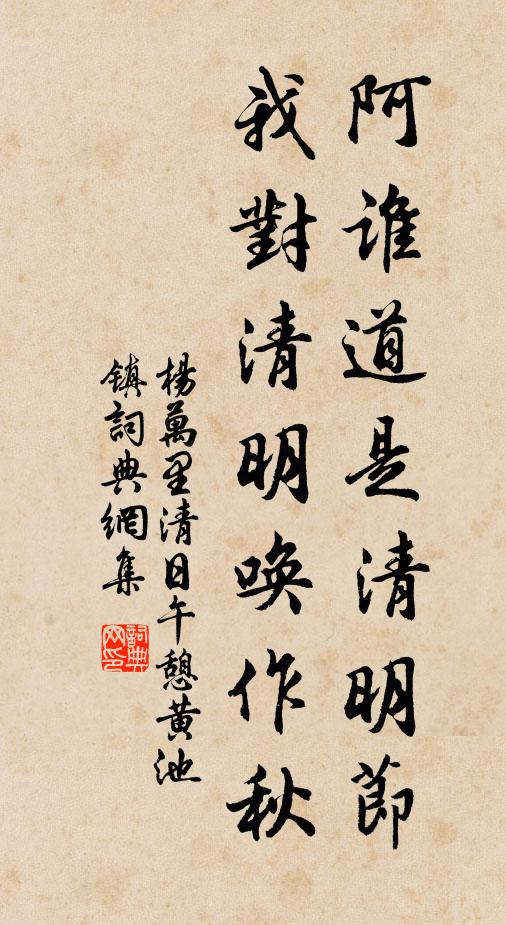 阿谁道是清明節
我對清明唤作秋
楊萬里清日午憩黄池
镇詞典網集
詞典网印